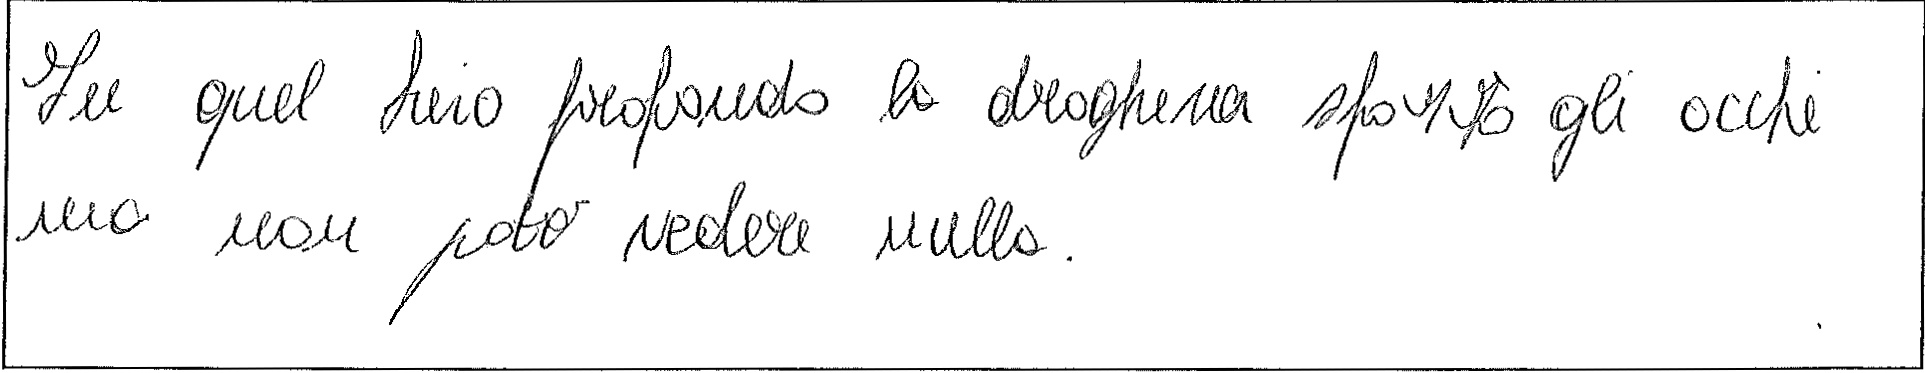 In quel buio profondo la droghiera sforzò gli occhi
ma non poté vedere nulla.